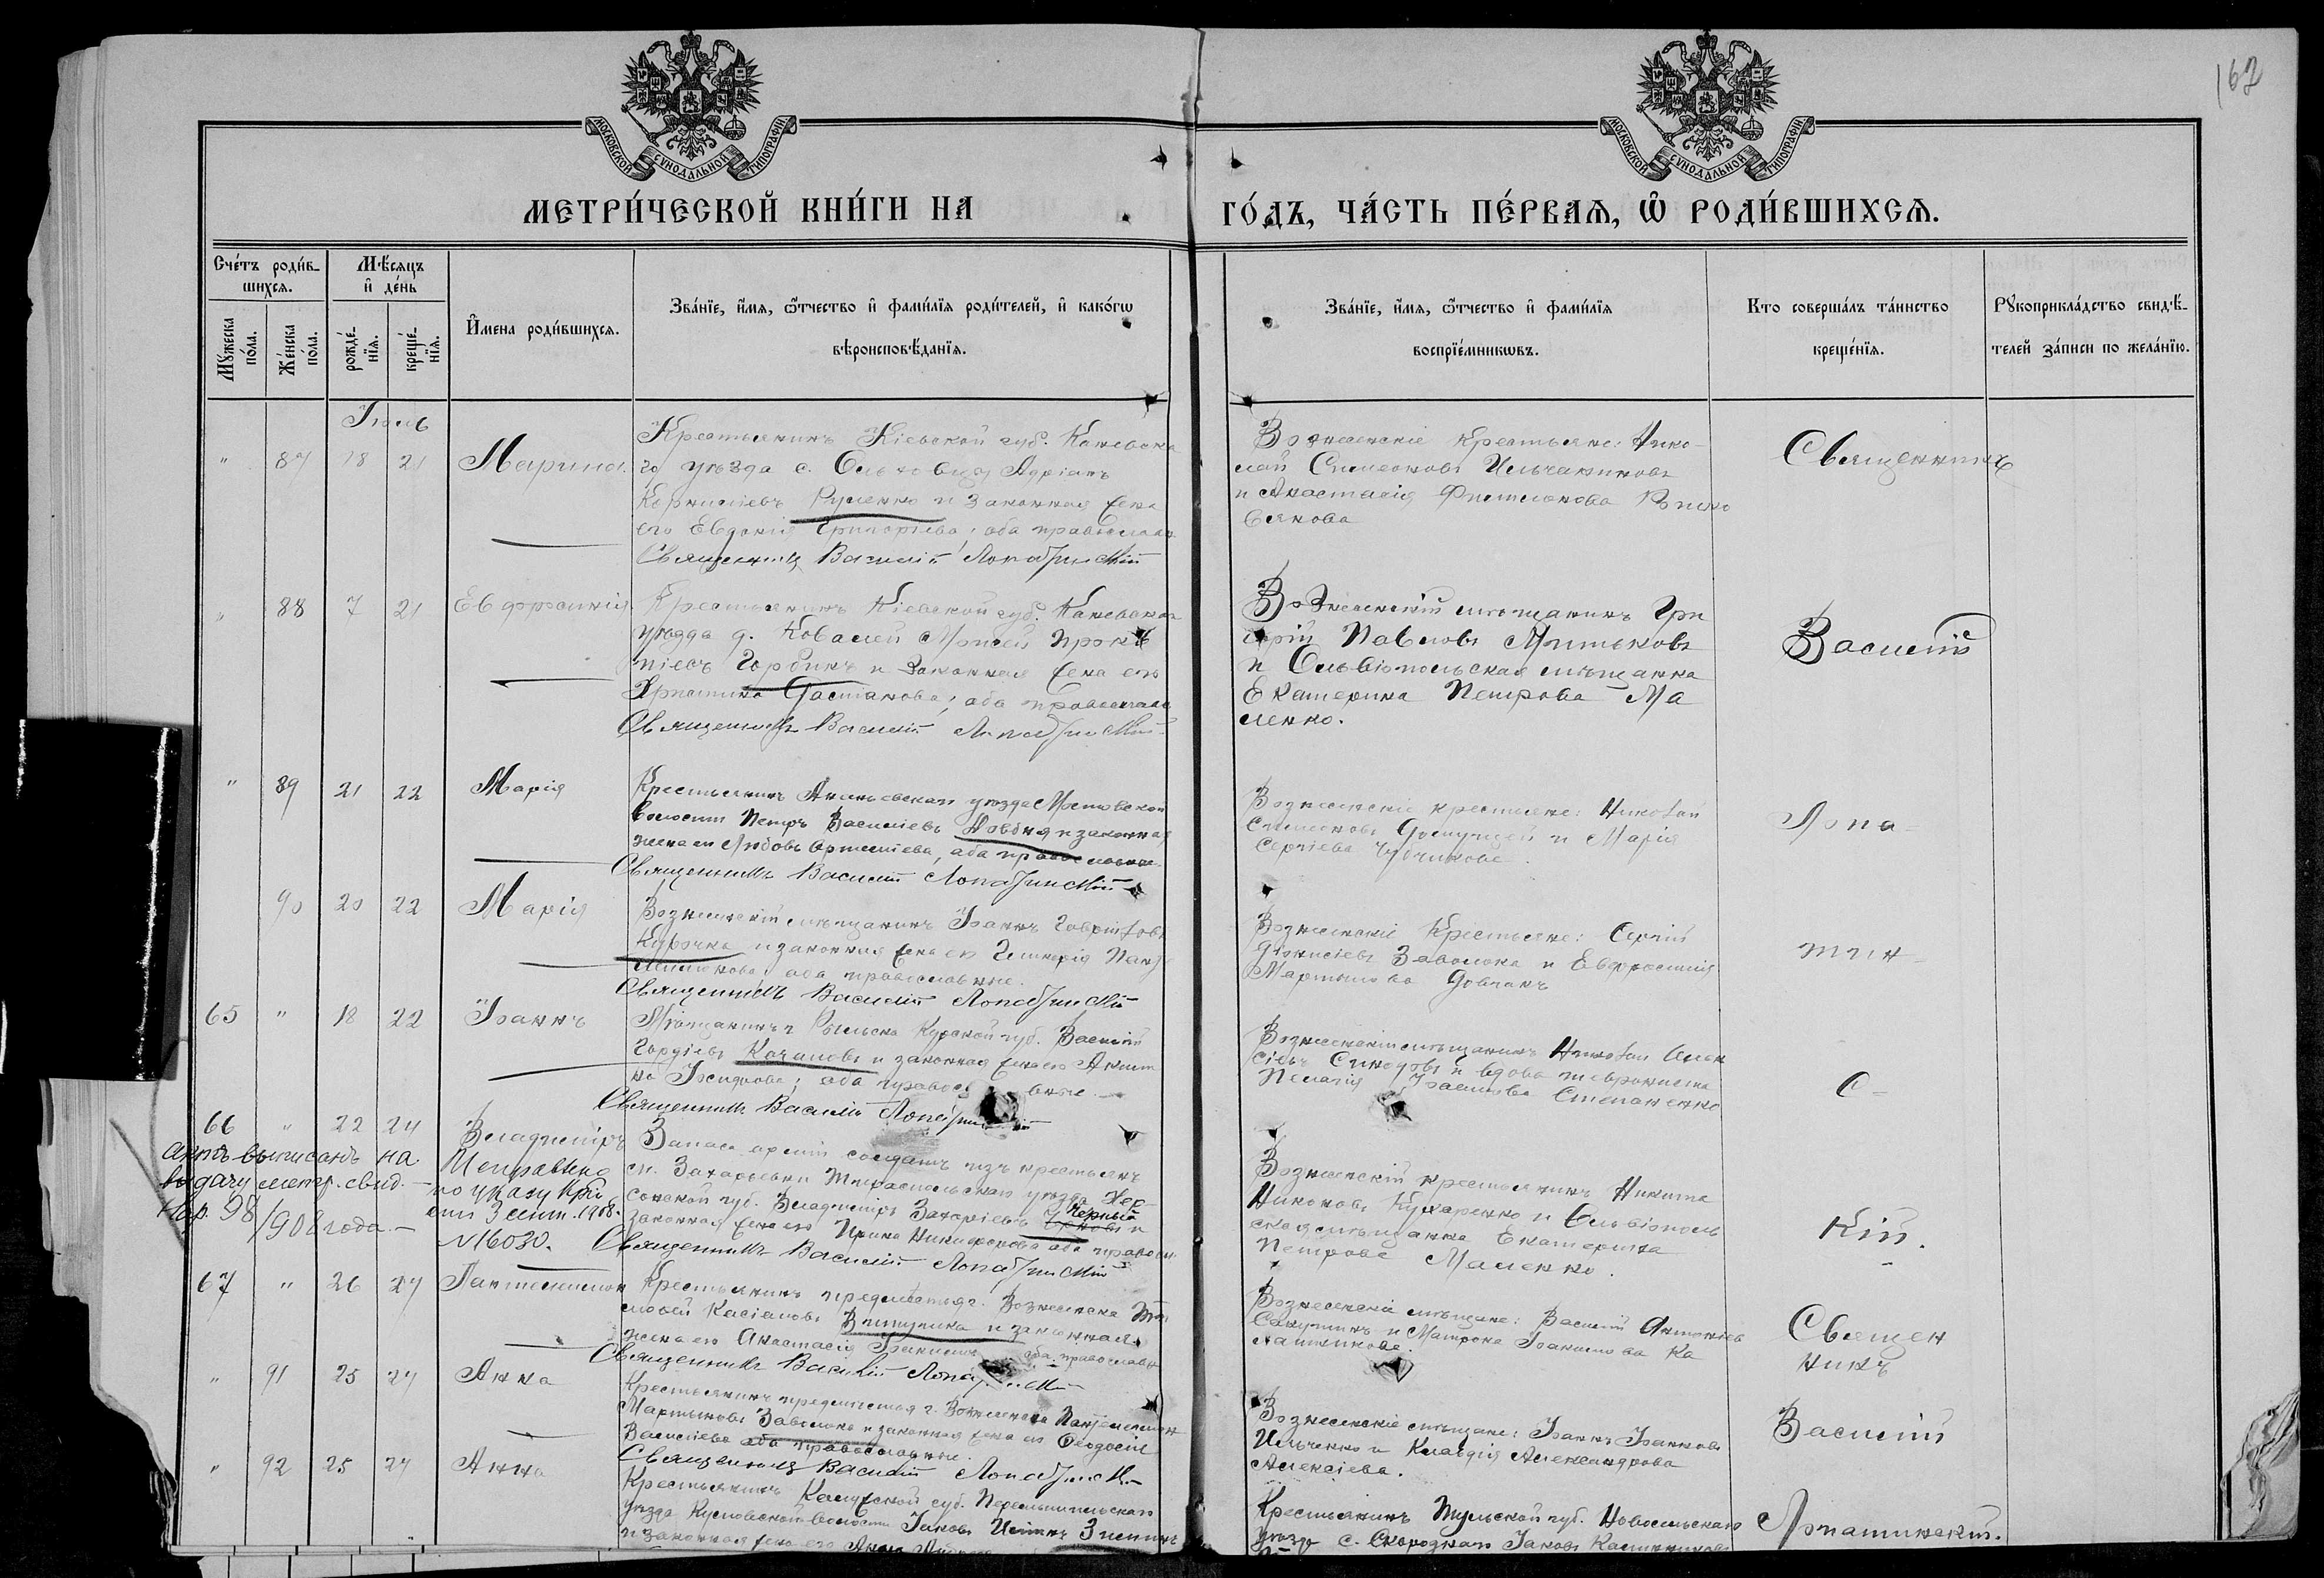 162
МОСКОВСКОЙ СѴНОДАЛЬНОЙ ТИПОГРАФІИ
МОСКОВСКОЙ СѴНОДАЛЬНОЙ ТИПОГРАФІИ
МЕТРИ́ЧЕСКОЙ КНИ́ГИ НА ГО́ДЪ, ЧА́СТЬ ПЕ́РВАЯ, Ѽ РОДИ́ВШИХСЯ.
Сче́тъ роди́в-
шихся.
Мѣ́сяцъ
и҆ де́нь
Мꙋ́жеска
по́ла.
Же́нска
по́ла.
рожде́-
нїя.
креще́-
нїя.
И҆мена роди́вшихся.
Зва́нїе, и҆́мя, ѻ҆́тчество и҆ фами́лїя роди́телей, и҆ како́гѡ
вѣроисповѣ́данїя.
Зва́нїе, и҆́мя, ѻ҆́тчество и҆ фами́лїя
воспрїе́мникѡвъ.
Кто соверша́лъ та́инство
креще́нїя.
Рꙋкоприкла́дство свидѣ́-
телей за́писи по жела́нїю.
Іюль
" 87 18 21 Марина.
Крестьянинъ Кіевской губ. Каневска
го уѣзда с. Адріанъ
Корниліевъ Руденко и законная жена
его Евдокія Григоріева; оба православн
Священникъ Василій Лопатинскій
Вознесенскіе крестьяне: Нико-
лай Симеоновъ
и Анастасія
Священникъ
" 88 7 21 Евфросинія
Крестьянинъ Кіевской губ. Каневскаго
уѣзда д. Ковалей Моисей Проко
піевъ Горбикъ и законная жена его
Христина; оба православн
Священникъ Василій Лопатинскій
Вознесенскій мѣщанинъ Гри
горій Павловъ Митьковъ
и Ольвіопольская мѣщанка
Екатерина Петрова Ма
ленко.
Василій
" 89 21 22 Марія
Крестьянинъ Ананьевскаго уѣзда Мостовской
волости Петръ Василіевъ Довбня и законная
жена его Любовь Артеміева, оба православные
Священникъ Василій Лопатинскій
Вознесенскіе крестьяне: Николай
Симеоновъ и Марія
Сергіева
Лопа-
90 20 22 Марія
Вознесенскій мѣщанинъ Іоаннъ Гавриловъ
Курочка и законная жена его Гликерія Пан
оба православные.
Священникъ Василій Лопатинскій
Вознесенскіе Крестьяне: Сергій
Діонисіевъ Заволока и Евфросинія
Мартынова Довганъ
тин-
65 " 18 22 Іоаннъ
Мѣщанинъ г. Рыльска Курской губ. Василій
Гордіевъ Качановъ и законная жена его Акили
на Іосифова; оба православные.
Священникъ Василій Лопатинскій
Вознесенскій мѣщанинъ Николай
и вдова
Пелагія Степаненко
С-
66 " 22 24 Владиміръ
актъ выписанъ на
выдачу метр. свид.-
98/908 года.-
Исправлено
по указу
3 сент. 1908.
№ 16030.
Запаса арміи солдатъ изъ крестьянъ
с. Захарьевки Тираспольскаго уѣзда Хер-
сонской губ. Владиміръ Захаріевъ Черный и
законная жена его Ирина Никифорова оба правосл
Священникъ Василій Лопатинскій
Вознесенскій крестьянинъ Никита
Никоновъ Кухаренко и Ольвіополь
ская мѣщанка Екатерина
Петрова Маленко.
кій.
67 " 26 27 Пантелеимон
Крестьянинъ предмѣстья г. Вознесенска Ти
мофей Касіановъ и законная
жена его Анастасія оба православн
Священникъ Василій Лопатинскій
Вознесенскіе мѣщане: Василій Антоніев
и Матрона Іоакимова Ка
лашникова.
Священ
никъ
" 91 25 27 Анна
Крестьянинъ предмѣстья г. Вознесенска Пантелеимон
Мартыновъ Заволока и законная жена его Ѳеодосія
Василіева оба православные.
Священникъ Василій Лопатинскій
Вознесенскіе мѣщане: Іоаннъ Іоанновъ
Ильченко и Клавдія Александрова
Алексіева.
Василій
" 92 25 27 Анна
Крестьянинъ Калужской губ. Перемышльскаго
уѣзда волости Іаковъ Зиминъ
и законная жена его Анна
Крестьянинъ Тульской губ. Новосильскаго
уѣзда с. Скороднаго Іаковъ
Лопатинскій.